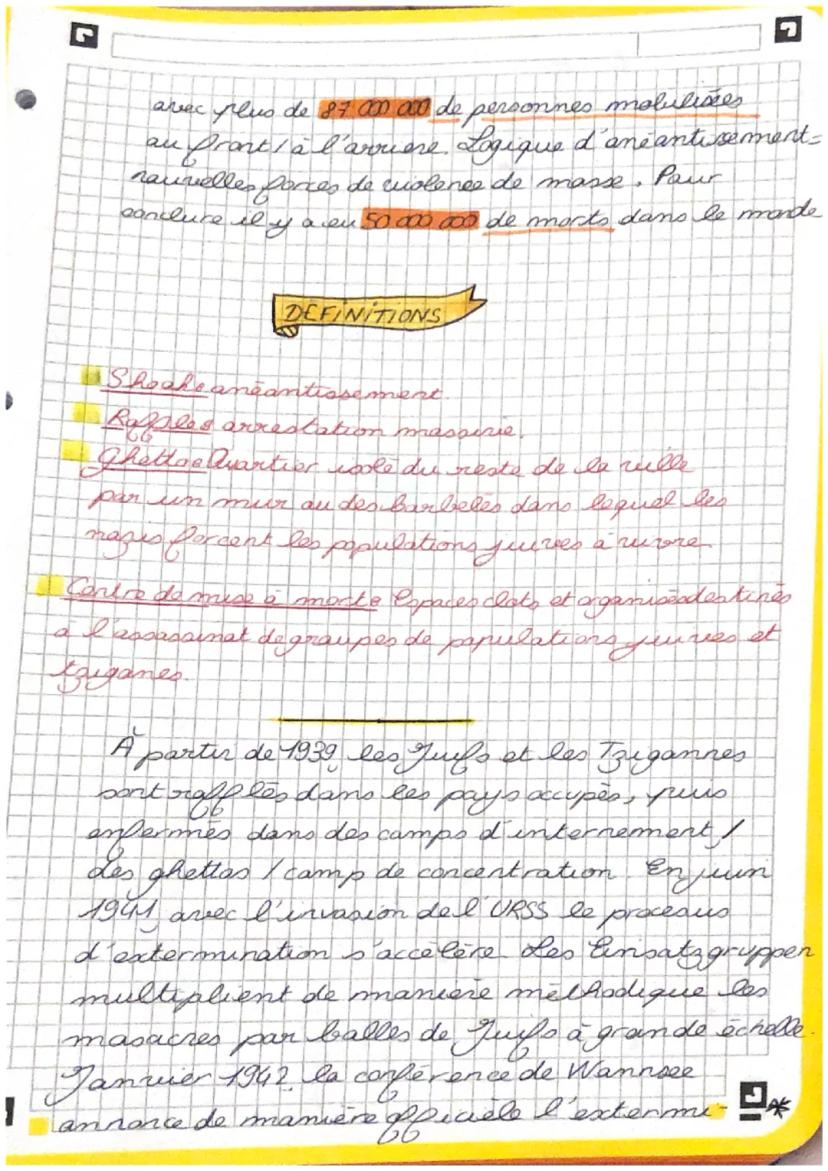 avec plus de 87 000 000 de personnes mobilisées
au front / à l'arriere. Logique d'anéantissement =
nouvelles forces de violence de masse. Pour
conclure il y a eu 50 000 000 de morts dans le monde
DÉFINITIONS
Shoah : anéantissement.
Raffles : arrestation massive.
Ghetto : Quartier isolé du reste de la ville
par un mur ou des barbelés dans lequel les
nazis forcent les populations juives à vivre.
Centre de mise à mort : Espaces clots et organisés destinés
à l'assassinat de groupes de populations juives et
tziganes.
À partir de 1939, les Juifs et les Tzigannes
sont rafflés dans les pays occupés, puis
enfermés dans des camps d'internement /
des ghettos / camp de concentration. En juin
1941, avec l'invasion de l'URSS le processus
d'extermination s'accélère. Les Einsatzgruppen
multiplient de manière méthodique les
masacres par balles de Juifs à grande échelle.
Janvier 1942, la conférence de Wannsee
annonce de manière officièle l'extermi-